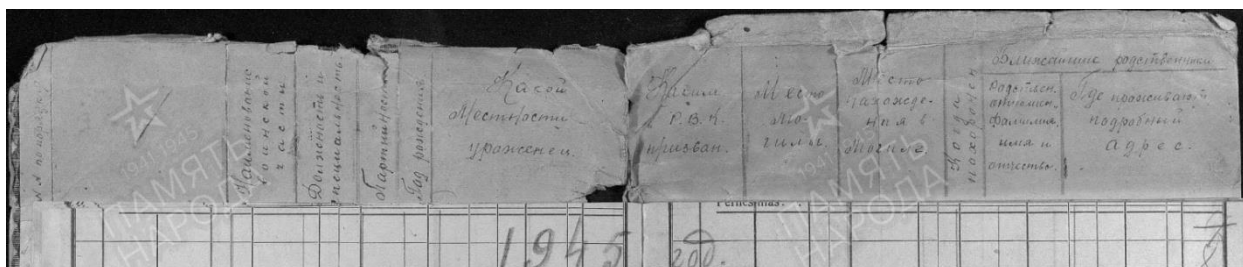 №№ по поряд.
Наименование
воинской
части
Должность и
специальность
Партийность
Год рождения
Какой
Местности
уроженец.
Каким
Р.В.К.
призван.
Место
Мо-
гилы.
Место
нахожде-
ния в
Могиле
Когда
похоронен
Ближайшие родственники
Родствен.
отношен.
фамилия,
имя и
отчество.
Где проживают
подробный
адрес.
1945 год.
ПАМЯТЬ
НАРОДА
1941 1945
ПАМЯТЬ
НАРОДА
1941 1945